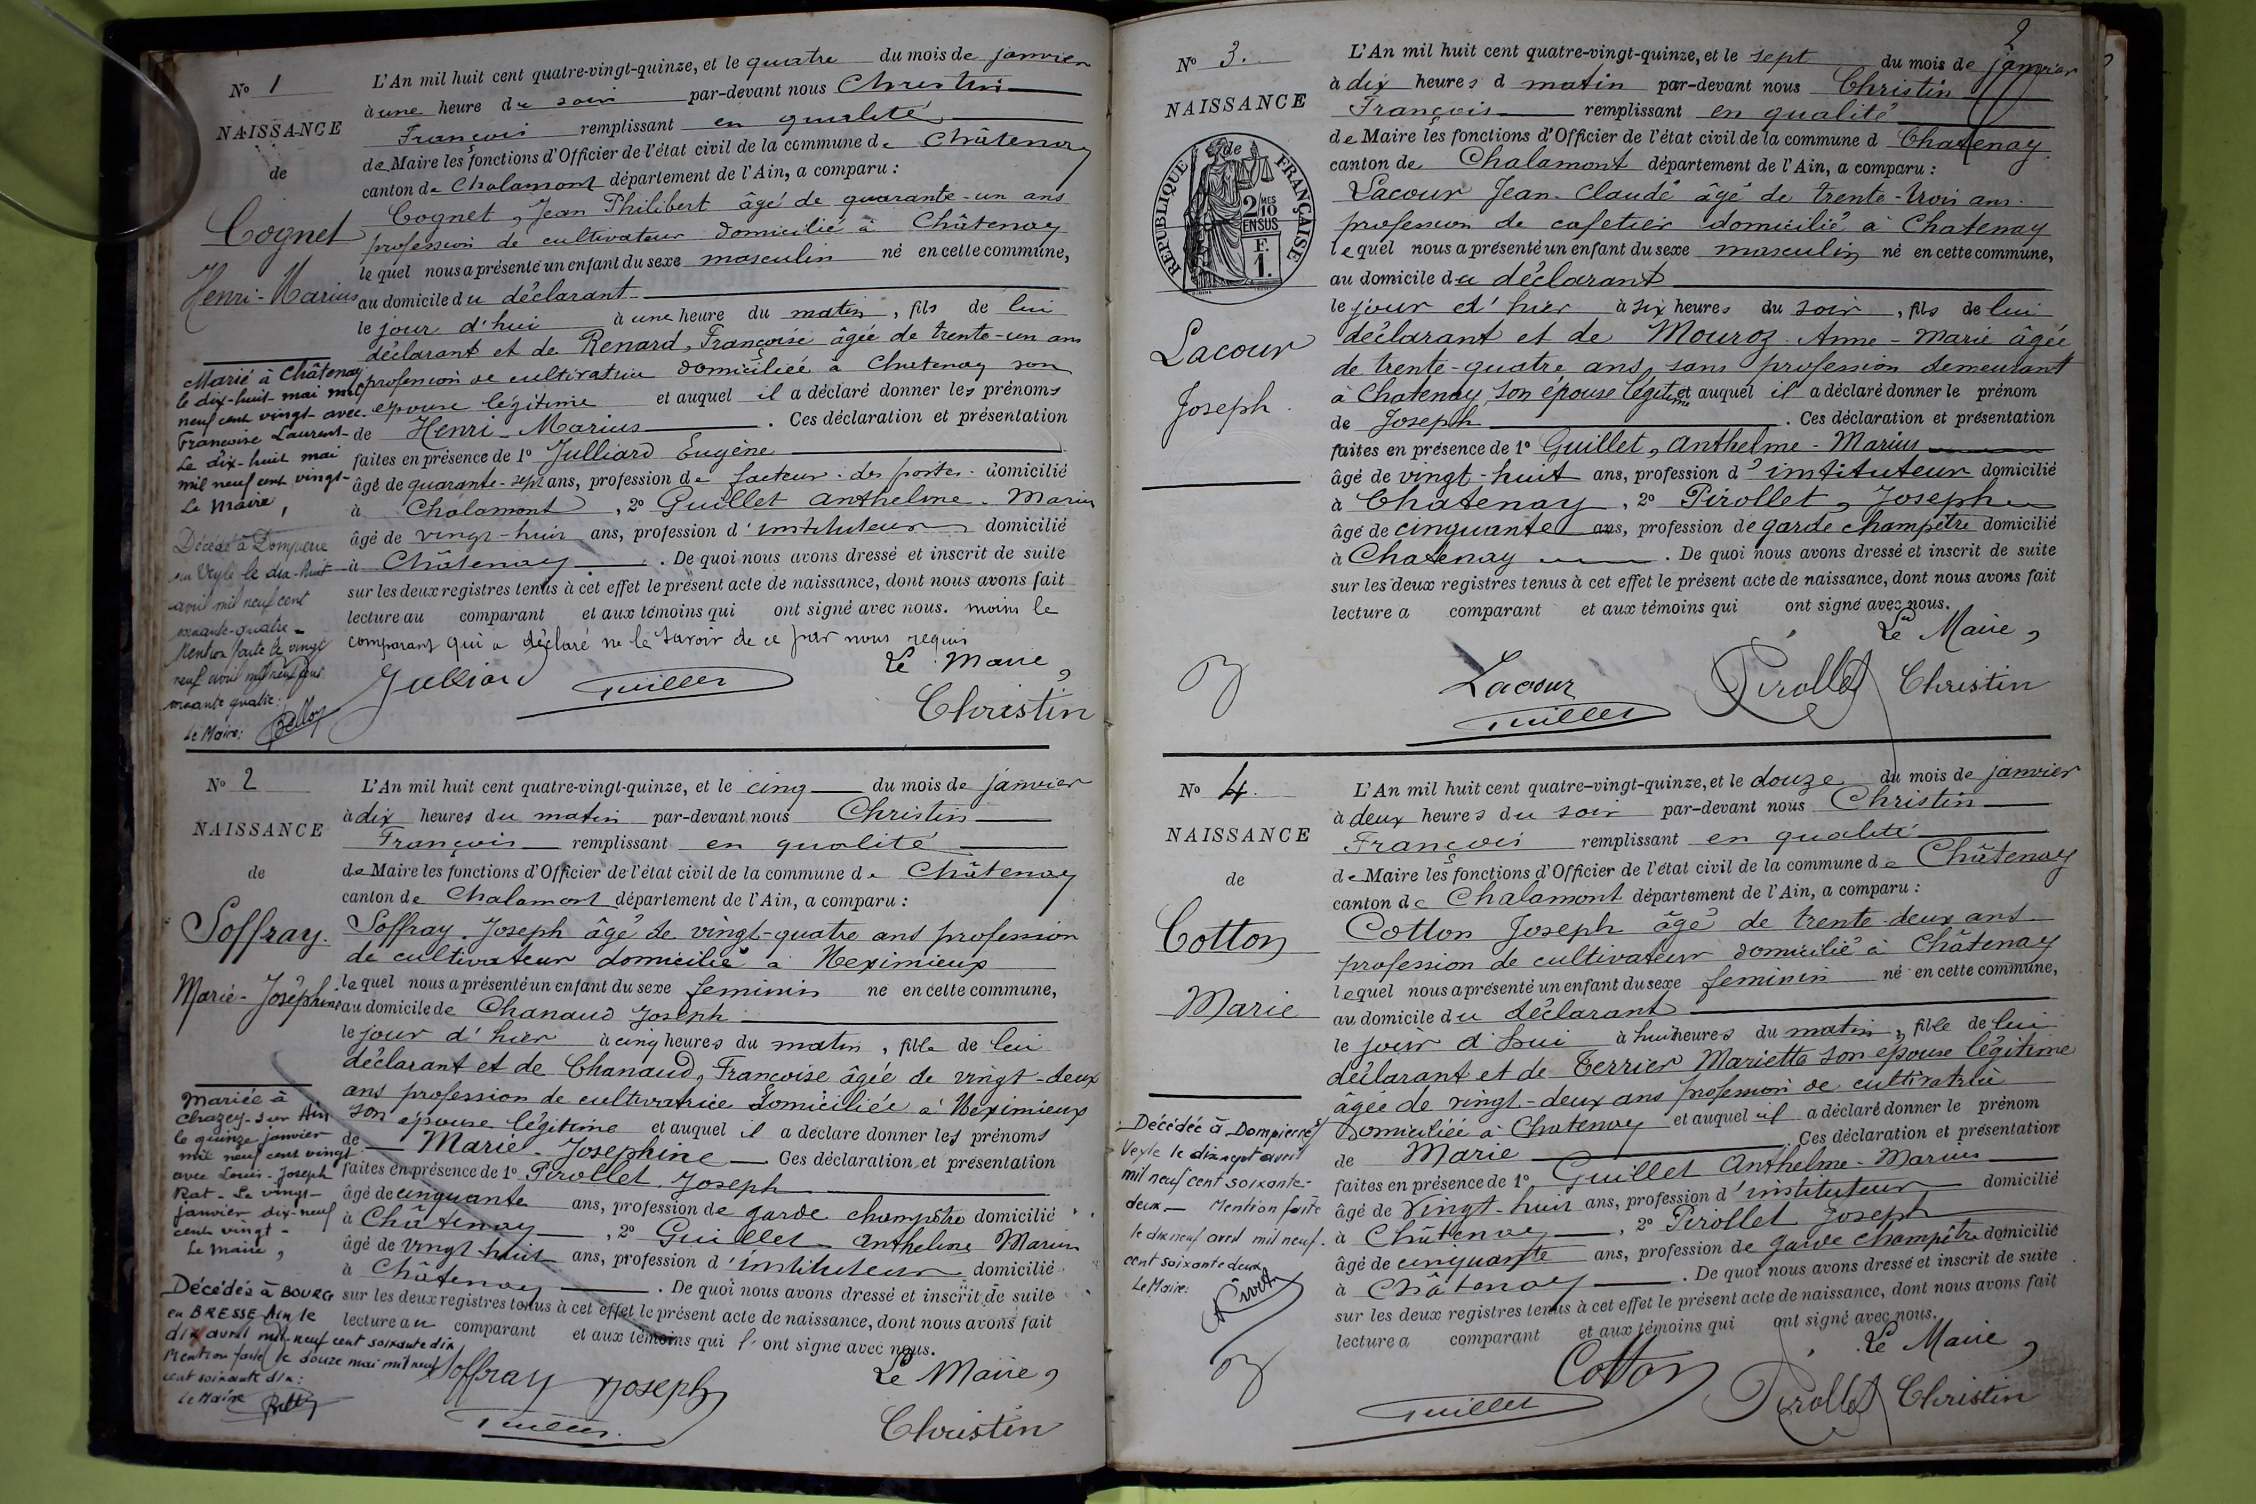 N° 1
NAISSANCE
de
Cognet
Henri-Marius
L'An mil huit cent quatre-vingt-quinze, et le quatre du mois de janvier
à une heure du soir par-devant nous Christin
François remplissant en qualité
de Maire les fonctions d'Officier de l'état civil de la commune de Châtenay
canton de Chalamont département de l'Ain, a comparu :
Cognet, Jean Philibert âgé de quarante-un ans
profession de cultivateur domicilié à Châtenay
lequel nous a présenté un enfant du sexe masculin né en cette commune,
au domicile du déclarant
le jour d'hui à une heure du matin, fils de lui
déclarant et de Renard, Françoise âgée de trente-un ans
profession de cultivatrice domiciliée à Chatenay son
épouse légitime et auquel il a déclaré donner les prénoms
de Henri-Marius. Ces déclaration et présentation
faites en présence de 1° Julliard Eugène
âgé de quarante-sept ans, profession de facteur des postes domicilié
à Chalamont, 2° Guillet Anthelme-Marius
âgé de vingt-huit ans, profession d'instituteur domicilié
à Châtenay. De quoi nous avons dressé et inscrit de suite
sur les deux registres tenus à cet effet le présent acte de naissance, dont nous avons fait
lecture au comparant et aux témoins qui ont signé avec nous. moins le
comparant qui a déclaré ne le savoir de ce par nous requis
Le Maire,
Julliard Guillet Christin
Marié à Châtenay
le dix-huit mai mil
neuf cent vingt avec
Françoise Laurent-
Le dix-huit mai
mil neuf cent vingt-
Le Maire,
Décédé à Dompierre
sur Veyle le dix-huit
avril mil neuf cent
soixante-quatre-
Mention faite le vingt
neuf avril mil neuf cent
soixante quatre:
Le Maire:
N° 2
NAISSANCE
de
Soffray.
Marie-Joséphine
L'An mil huit cent quatre-vingt-quinze, et le cinq du mois de janvier
à dix heures du matin par-devant nous Christin
François remplissant en qualité
de Maire les fonctions d'Officier de l'état civil de la commune de Châtenay
canton de Chalamont département de l'Ain, a comparu :
Soffray. Joseph âgé de vingt-quatre ans profession
de cultivateur domicilié à Meximieux
lequel nous a présenté un enfant du sexe feminin né en cette commune,
au domicile de Chanaud Joseph
le jour d'hier à cinq heures du matin, fille de lui
déclarant et de Chanaud, Françoise âgée de vingt-deux
ans profession de cultivatrice domiciliée à Meximieux
son épouse légitime et auquel il a déclaré donner les prénoms
de Marie-Josephine Ces déclaration et présentation
faites en présence de 1° Pirollet Joseph
âgé de cinquante ans, profession de garde champêtre domicilié
à Châtenay, 2° Guillet Anthelme Marius
âgé de vingt-huit ans, profession d'instituteur domicilié
à Châtenay. De quoi nous avons dressé et inscrit de suite
sur les deux registres tenus à cet effet le présent acte de naissance, dont nous avons fait
lecture au comparant et aux témoins qui l'ont signé avec nous.
Le Maire,
Soffray Joseph
Guillet Christin
Mariée à
Chazey-sur Ain
le quinze janvier
mil neuf cent vingt
avec Louis-Joseph
Rat- Le vingt-
janvier dix-neuf
cent vingt-
Le Maire,
Décédés à BOURG
en BRESSE Ain le
dix avril mil-neuf cent soixante dix
Mention faite le douze mai mil neuf
cent soixante dix:
Le Maire
2
N° 3.
NAISSANCE
de
RÉPUBLIQUE FRANÇAISE
2/10 MES
EN SUS
F.
1.
Lacour
Joseph.
L'An mil huit cent quatre-vingt-quinze, et le sept du mois de janvier
à dix heures d matin par-devant nous Christin
François remplissant en qualité
de Maire les fonctions d'Officier de l'état civil de la commune d Chatenay
canton de Chalamont département de l'Ain, a comparu :
Lacour Jean-Claude âgé de trente-trois ans.
profession de cafetier domicilié à Chatenay
lequel nous a présenté un enfant du sexe masculin né en cette commune,
au domicile du déclarant
le jour d'hier à six heures du soir, fils de lui
déclarant et de Mouroz Anne-Marie âgée
de trente-quatre ans, sans profession demeurant
à Chatenay, son épouse légitime et auquel il a déclaré donner le prénom
de Joseph. Ces déclaration et présentation
faites en présence de 1° Guillet, Anthelme-Marius
âgé de vingt-huit ans, profession d'instituteur domicilié
à Chatenay, 2° Pirollet, Joseph
âgé de cinquante ans, profession de garde champêtre domicilié
à Chatenay. De quoi nous avons dressé et inscrit de suite
sur les deux registres tenus à cet effet le présent acte de naissance, dont nous avons fait
lecture a comparant et aux témoins qui ont signé avec nous.
Le Maire,
Lacour Pirollet Christin
Guillet
N° 4.
NAISSANCE
de
Cotton
Marie
L'An mil huit cent quatre-vingt-quinze, et le douze du mois de janvier
à deux heures du soir par-devant nous Christin
François remplissant en qualité
de Maire les fonctions d'Officier de l'état civil de la commune de Châtenay
canton de Chalamont département de l'Ain, a comparu :
Cotton Joseph âgé de trente-deux ans
profession de cultivateur domicilié à Châtenay
lequel nous a présenté un enfant du sexe feminin né en cette commune,
au domicile du déclarant
le jour d'hui à huit heures du matin, fille de lui
déclarant et de Terrier Mariette son épouse légitime
âgée de vingt-deux ans profession de cultivatrice
domiciliée à Chatenay et auquel il a déclaré donner le prénom
de Marie. Ces déclaration et présentation
faites en présence de 1° Guillet Anthelme-Marius
âgé de vingt-huit ans, profession d'instituteur domicilié
à Châtenay, 2° Pirollet Joseph
âgé de cinquante ans, profession de garde champêtre domicilié
à Châtenay. De quoi nous avons dressé et inscrit de suite
sur les deux registres tenus à cet effet le présent acte de naissance, dont nous avons fait
lecture a comparant et aux témoins qui ont signé avec nous.
Le Maire,
Cotton
Guillet Pirollet Christin
Décédée à Dompierre s/
Veyle le dix sept avril
mil neuf cent soixante-
deux- Mention faite
le dix neuf avril mil neuf
cent soixante deux
Le Maire: